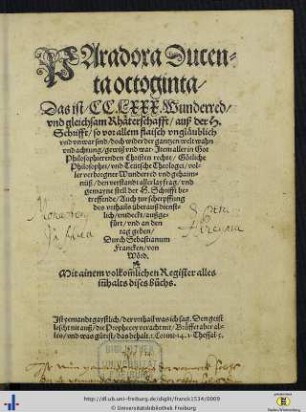 PAradoxa Ducen-
ta octoginta/
Das ist/ CCLXXX. Wunderred/
vnd gleichsam Rhäterschafft/ auß der H.
Schrifft/ so vor allem flaisch vngläublich
vnd vnwar sind/ doch wider der gantzen welt wahn
vnd achtung/ gewiß vnd war. Item aller in Got
Philosophierenden Christen rechte/ Götliche
Philosophei/ vnd Teütsche Theologei/ vol-
ler verborgner Wunderred vnd gehaim-
nüß/ den verstandt aller lay frag/ vnd
gemayne stell der H. Schrifft be-
treffende/ Auch zur scherpffung
des vrthails überauß dienst-
lich/ entdeckt/ außge-
fürt/ vnd an den
tag geben/
Durch Sebastianum
Francken/ von
Wörd.
Mit ainem volkom̃lichen Register alles
iñhalts dises bůchs.
Ist yemandt gaystlich/ der vrthail was ich sag. Den geist
lescht nit auß/ die Prophecey veracht nit/ Brüffet aber al-
les/ vnd was gůt ist/ das behalt. 1. Corint. 14. 1. Thessal. 5.
http://dl.ub.uni-freiburg.de/diglit/franck1534/0009
© Universitätsbibliothek Freiburg